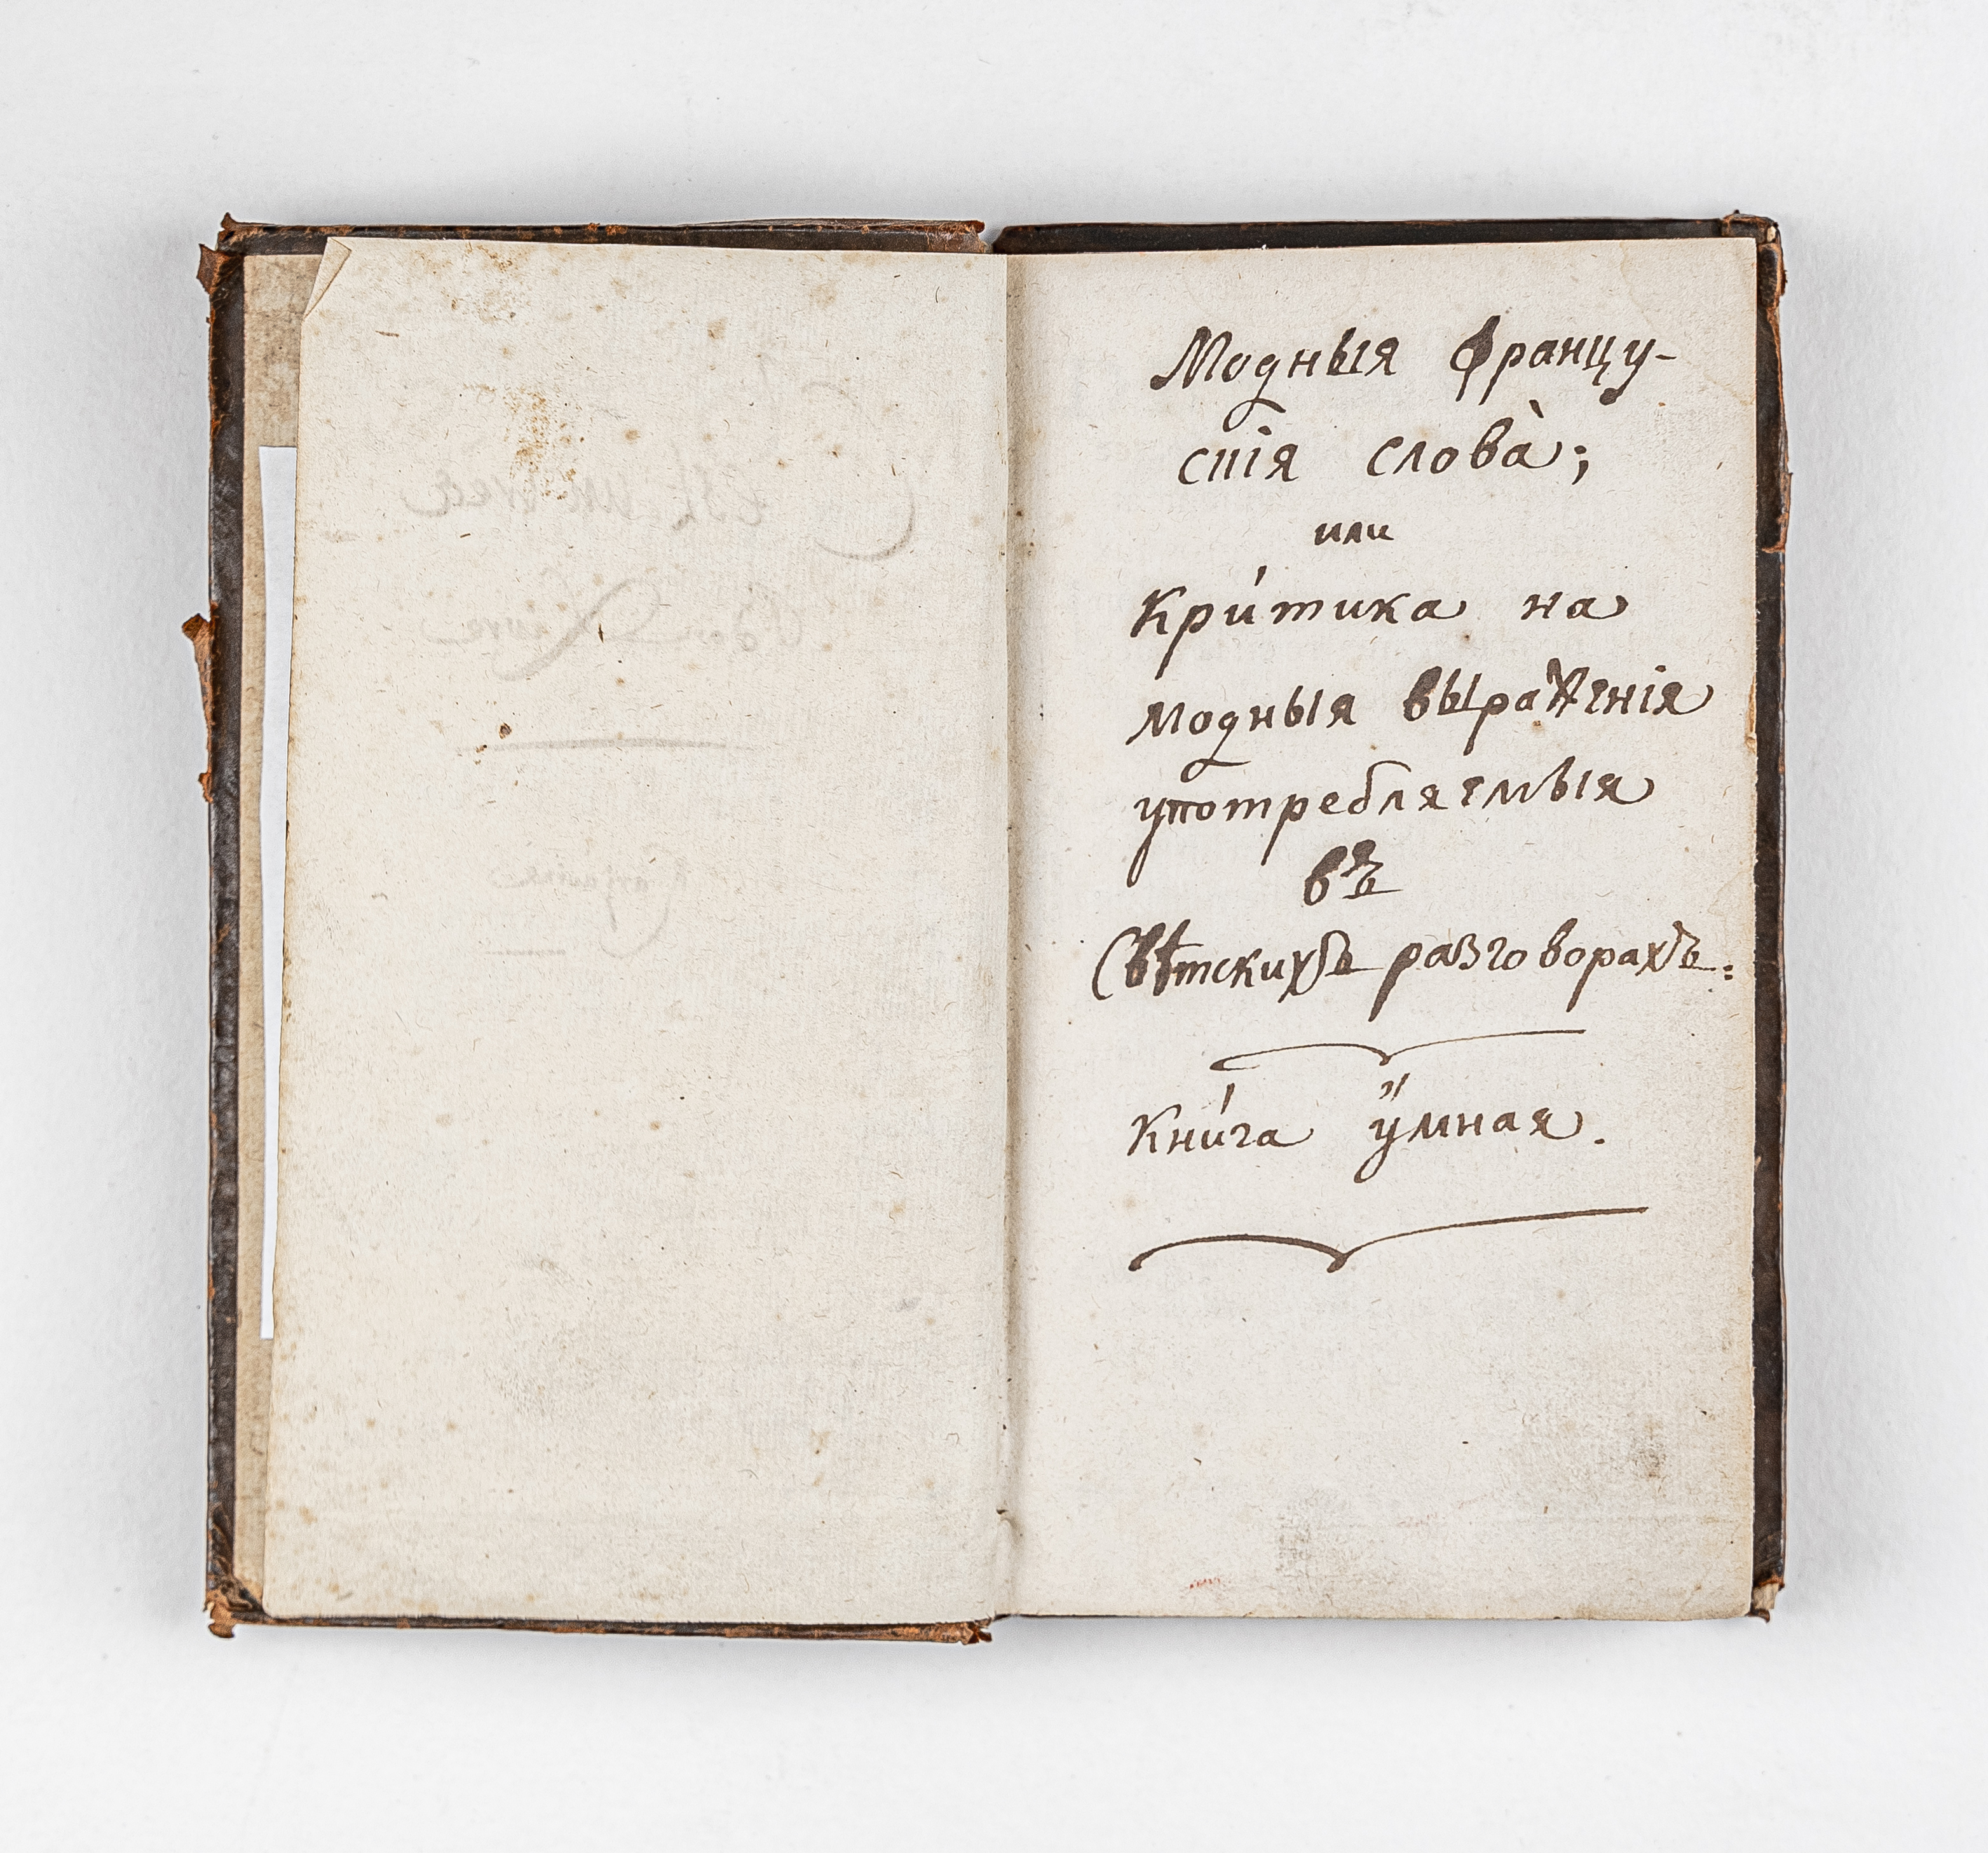 Модныя Францу-
скія слова̀;
или
Кри́тика на
модныя выраженія
употребляемыя
въ
Свѣтскихъ разговорахъ:
Кни́га ӳмная.